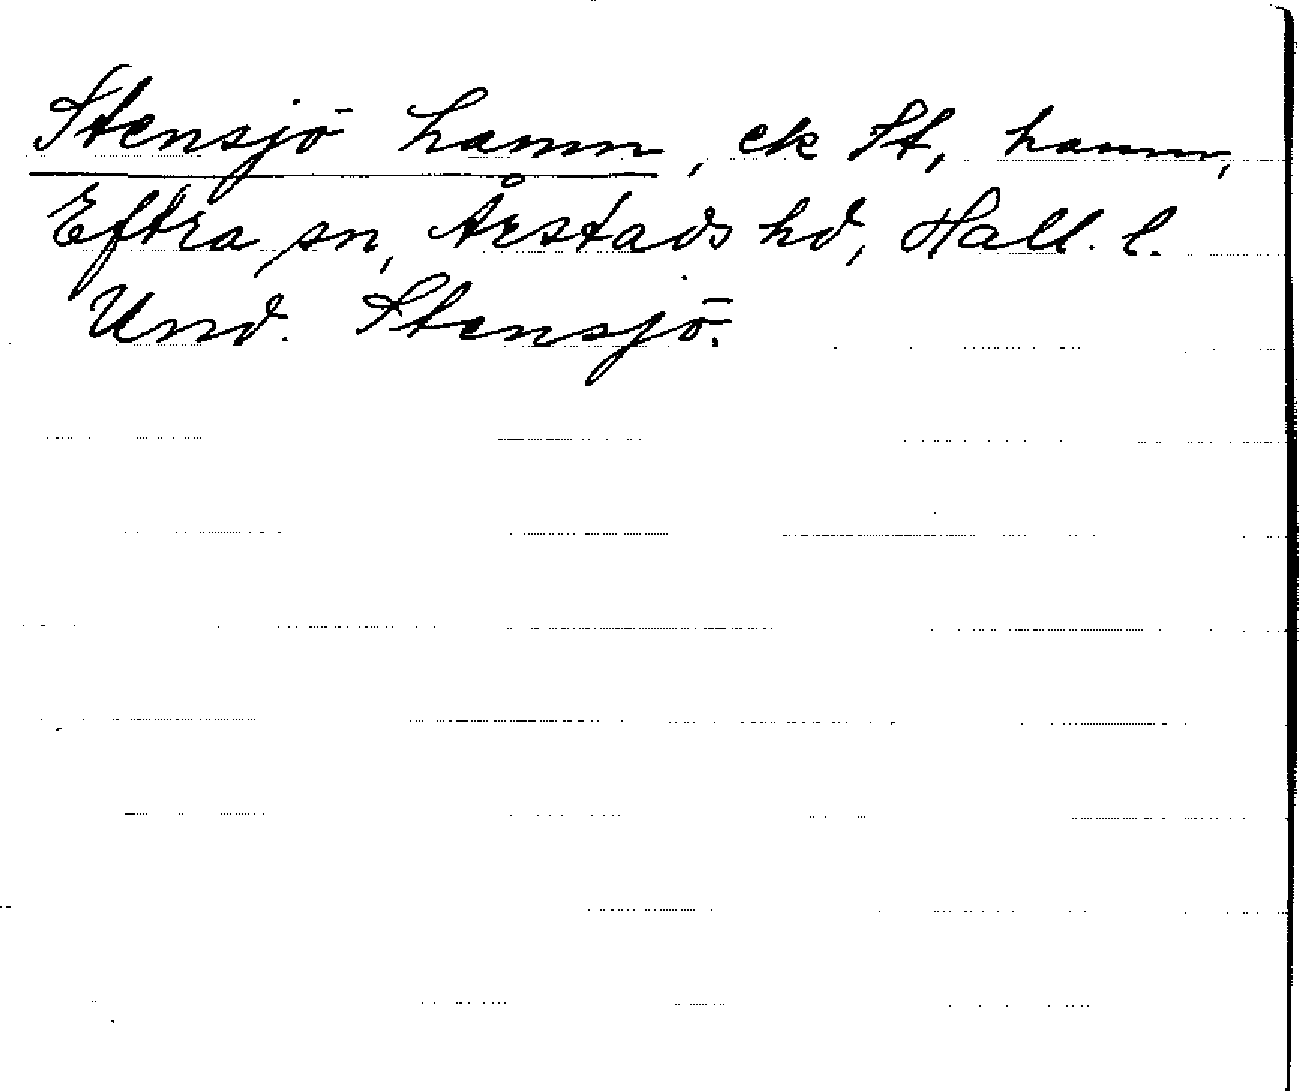 Stensjö hamn, ek St, hamn,
Eftra sn, Årstads hd, Hall. l.
Und. Stensjö.